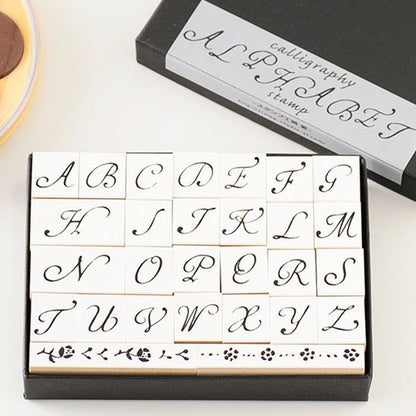 calligraphy
ALPHABET
stamp
A B C D E F G
H I J K L M
N O P Q R S
T U V W X Y Z